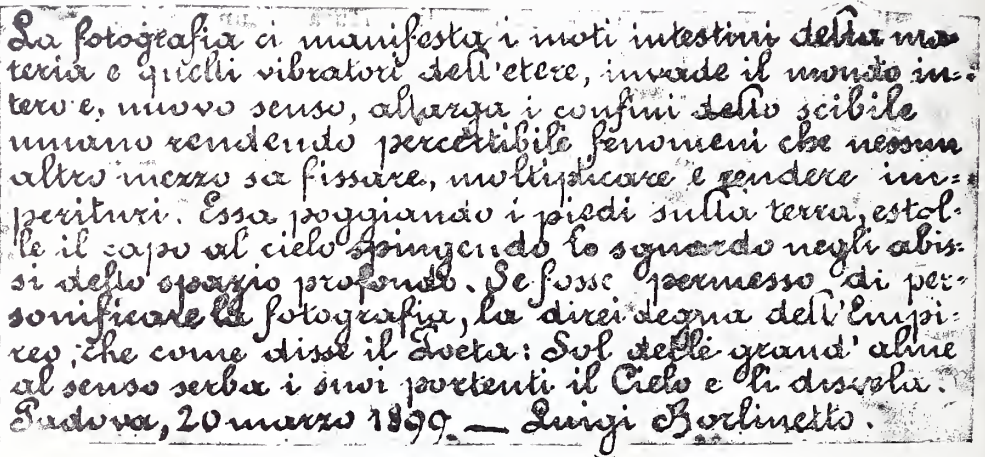 La fotografia ci manifesta i moti intestini della ma
teria e quelli vibratori dell'etere, invade il mondo in=
tero e, nuovo senso, allarga i confini dello scibile
umano rendendo percettibile fenomeni che nessun
altro mezzo sa fissare, moltiplicare e rendere im=
perituri. Essa poggiando i piedi sulla terra, estol=
le il capo al cielo spingendo lo sguardo negli abis=
si dello spazio profondo. Se fosse permesso di per=
sonificare la fotografia, la direi degna dell'Empi=
reo, che come disse il Poeta: Sol delle grand' alme
al senso serba i suoi portenti il Cielo e li disvela.
Padova, 20 marzo 1899. — Luigi Borlinetto.